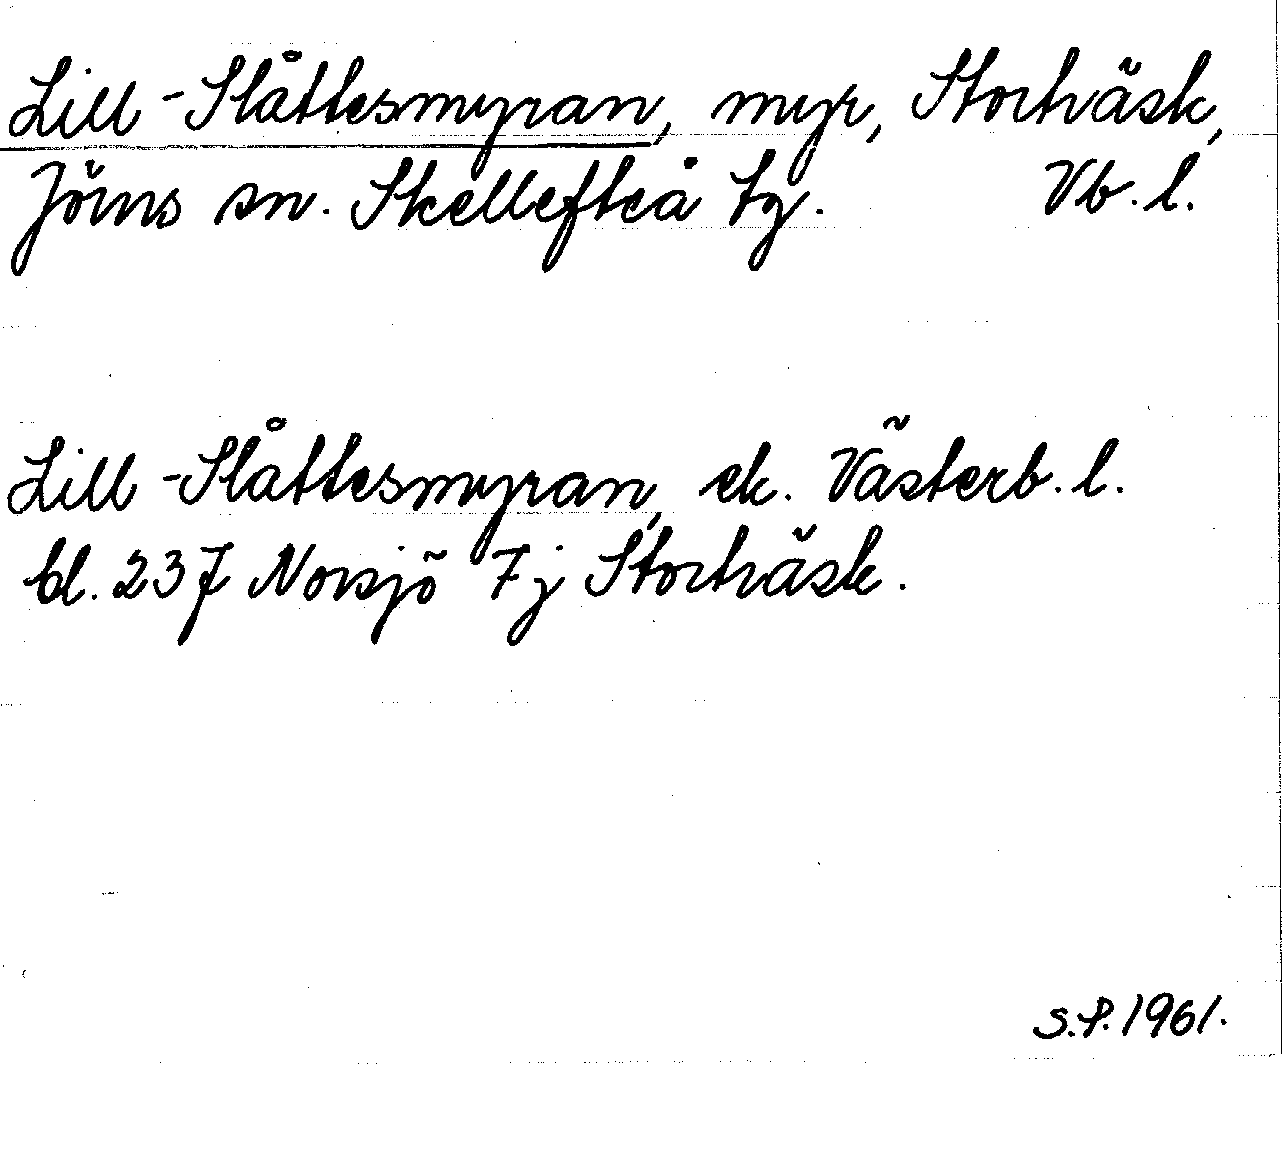 Lill-Slåttesmyran, myr, Storträsk,
Jörns sn. Skellefteå tg. Vb.l.
Lill-Slåttesmyran, ek. Västerb.l.
bl. 237 Norsjö 7j Storträsk.
S.P. 1961.